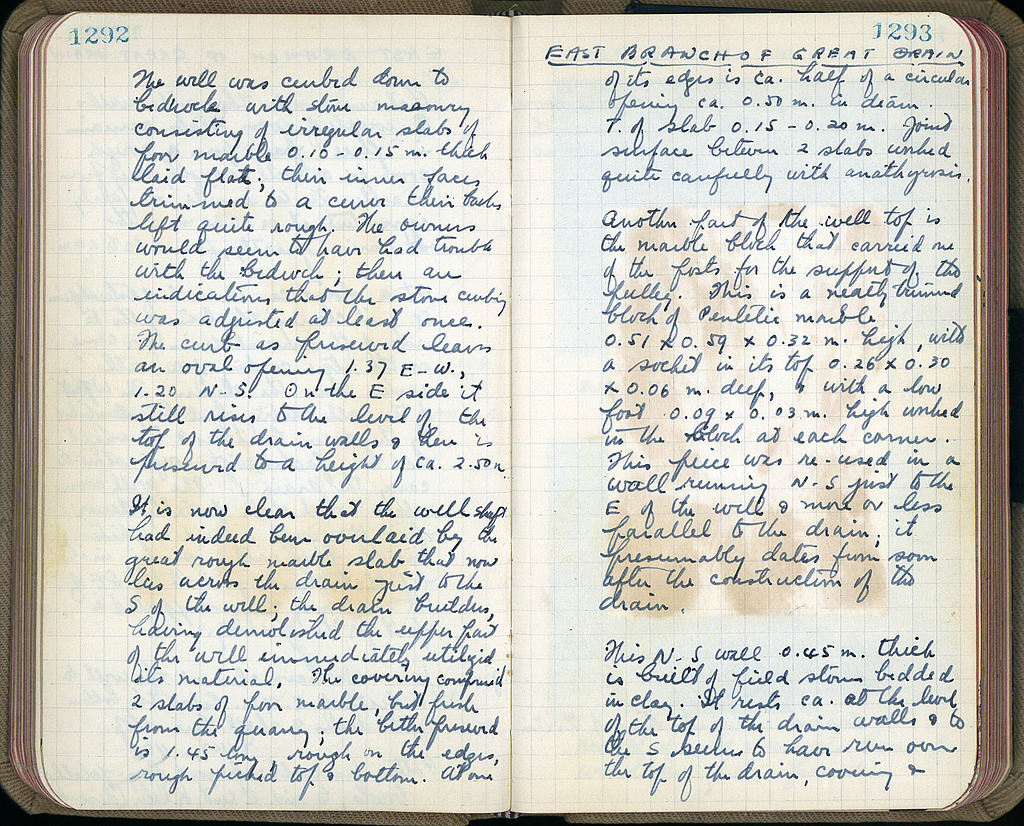 1292
The well was curbed down to
bedrock with stone masonry
consisting of irregular slabs of
poor marble 0.10 - 0.15 m. thick
laid flat; their inner faces
trimmed to a curve their backs
left quite rough. The owners
would seem to have had trouble
with the bedrock; there are
indications that the stone curbing
was adjusted at least once.
The curb as preserved leaves
an oval opening 1.37 E-W.,
1.20 N-S. On the E side it
still rises to the level of the
top of the drain walls & here is
preserved to a height of ca. 2.50 m
It is now clear that the well shaft
had indeed been overlaid by the
great rough marble slab that now
lies across the drain just to the
S of the well; the drain builders,
having demolished the upper part
of the well immediately utilized
its material. The covering comprised
2 slabs of poor marble, but fresh
from the quarry; the better preserved
is 1.45 long, rough on the edges,
rough picked top & bottom. At one
1293
EAST BRANCH OF GREAT DRAIN
of its edges is ca. half of a circular
opening ca. 0.50 m. in diam.
T. of slab 0.15 - 0.20 m. Joint
surface between 2 slabs worked
quite carefully with anathyrosis.
Another part of the well top is
the marble block that carried one
of the posts for the support of the
pulley. This is a neatly trimmed
block of Pentelic marble
0.51 x 0.59 x 0.32 m. high, with
a socket in its top 0.26 x 0.30
x 0.06 m. deep, & with a low
foot 0.09 x 0.03 m. high worked
in the block at each corner.
This piece was re-used in a
wall running N-S just to the
E of the well & more or less
parallel to the drain; it
presumably dates from soon
after the construction of the
drain.
This N-S wall 0.45 m. thick
is built of field stones bedded
in clay. It rests ca. at the level
of the top of the drain walls & to
the S seems to have run over
the top of the drain, covering &